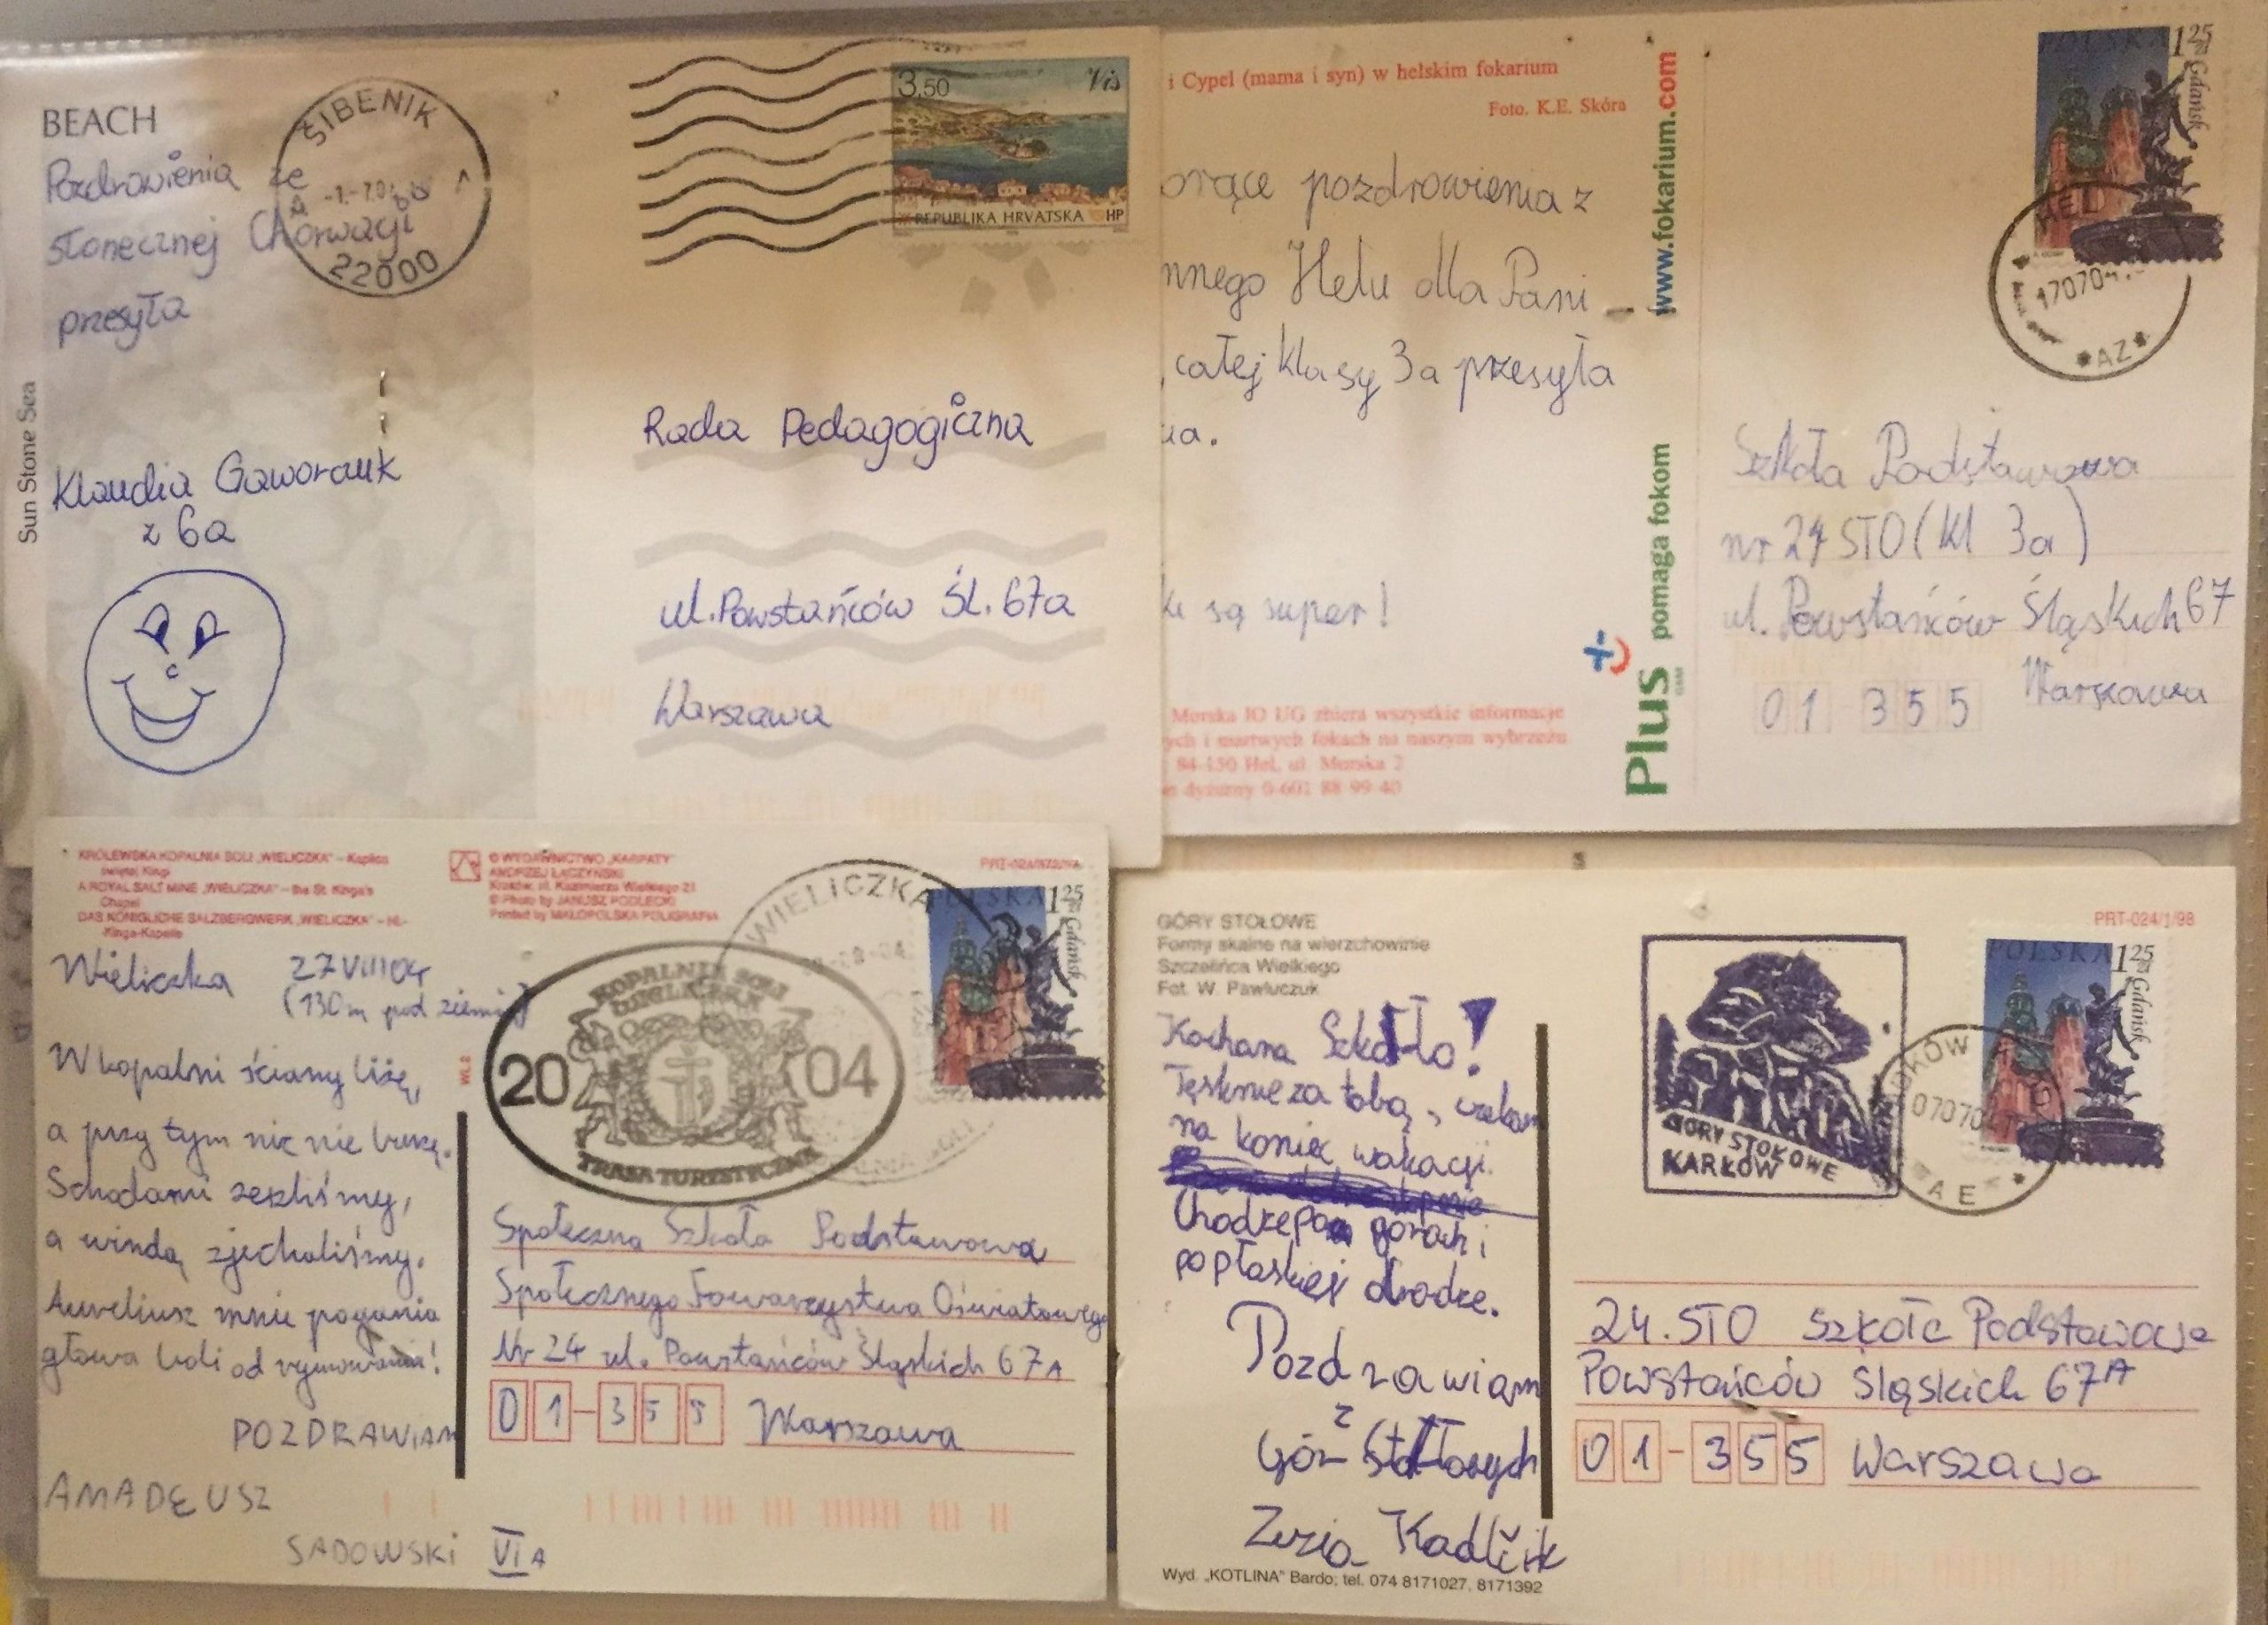 BEACH
Pozdrowienia ze
słonecznej Chorwacji
przesyła
Klaudia
z 6a
Sun Stone Sea
ŠIBENIK
22000
3,50 Vis
REPUBLIKA HRVATSKA HP
Rada Pedagogiczna
ul. Powstańców Śl. 67a
Warszawa
i Cypel (mama i syn) w helskim fokarium
Foto. K.E. Skóra
orące pozdrowienia z
nnego Helu dla Pani
całej klasy 3a przesyła
są super!
Morska IO UG zbiera wszystkie informacje
ych i martwych fokach na naszym wybrzeżu
84-150 Hel, ul. Morska 2
n dyżurny 0-601 88 99 40
www.fokarium.com
Plus pomaga fokom
GSM
POLSKA 1 25 zł
Gdańsk
HEL
170704
*AZ*
Szkoła Podstawowa
nr 24 STO (kl 3a)
ul. Powstańców Śląskich 67
Warszawa
01 355
KRÓLEWSKA KOPALNIA SOLI „WIELICZKA" - Kaplica
świętej Kingi
A ROYAL SALT MINE „WIELICZKA" - the St. Kinga's
Chapel
DAS KÖNIGLICHE SALZBERGWERK „WIELICZKA" - Hl.-
-Kinga-Kapelle
© WYDAWNICTWO „KARPATY"
ANDRZEJ ŁĄCZYŃSKI
Kraków, ul. Kazimierza Wielkiego 21
© Photo by JANUSZ PODLECKI
Printed by MAŁOPOLSKA POLIGRAFIA
Wieliczka 27 VIII 04r
(130m pod ziemią)
W kopalni ściany liżę,
a przy tym nic nie
Schodami zeszliśmy,
a windą zjechaliśmy.
Aureliusz mnie pogania
głowa boli od rymowania!
POZDRAWIAM
AMADEUSZ
SADOWSKI VI A
WIELICZKA
KOPALNIA SOLI
WIELICZKA
20 04
TRASA TURYSTYCZNA
POLSKA 1 25 zł
Gdańsk
Społeczna Szkoła Podstawowa
Społecznego Towarzystwa Oświatowego
Nr 24 ul. Powstańców Śląskich 67A
01-355 Warszawa
GÓRY STOŁOWE
Formy skalne na wierzchowinie
Szczelińca Wielkiego
Fot. W. Pawluczuk
PRT-024/1/98
Kochana Szkoło!
Tęsknie za tobą, czekam
na koniec wakacji.
Chodzę po górach i
po płaskiej drodze.
Pozdrawiam
z
Gór Stołowych
Zuzia Kadlčik
Wyd. „KOTLINA" Bardo; tel. 074 8171027, 8171392
GÓRY STOŁOWE
KARŁÓW
POLSKA 1 25 zł
Gdańsk
070704
A E *
24. STO Szkoła Podstawowa
Powstańców Śląskich 67A
01-355 Warszawa